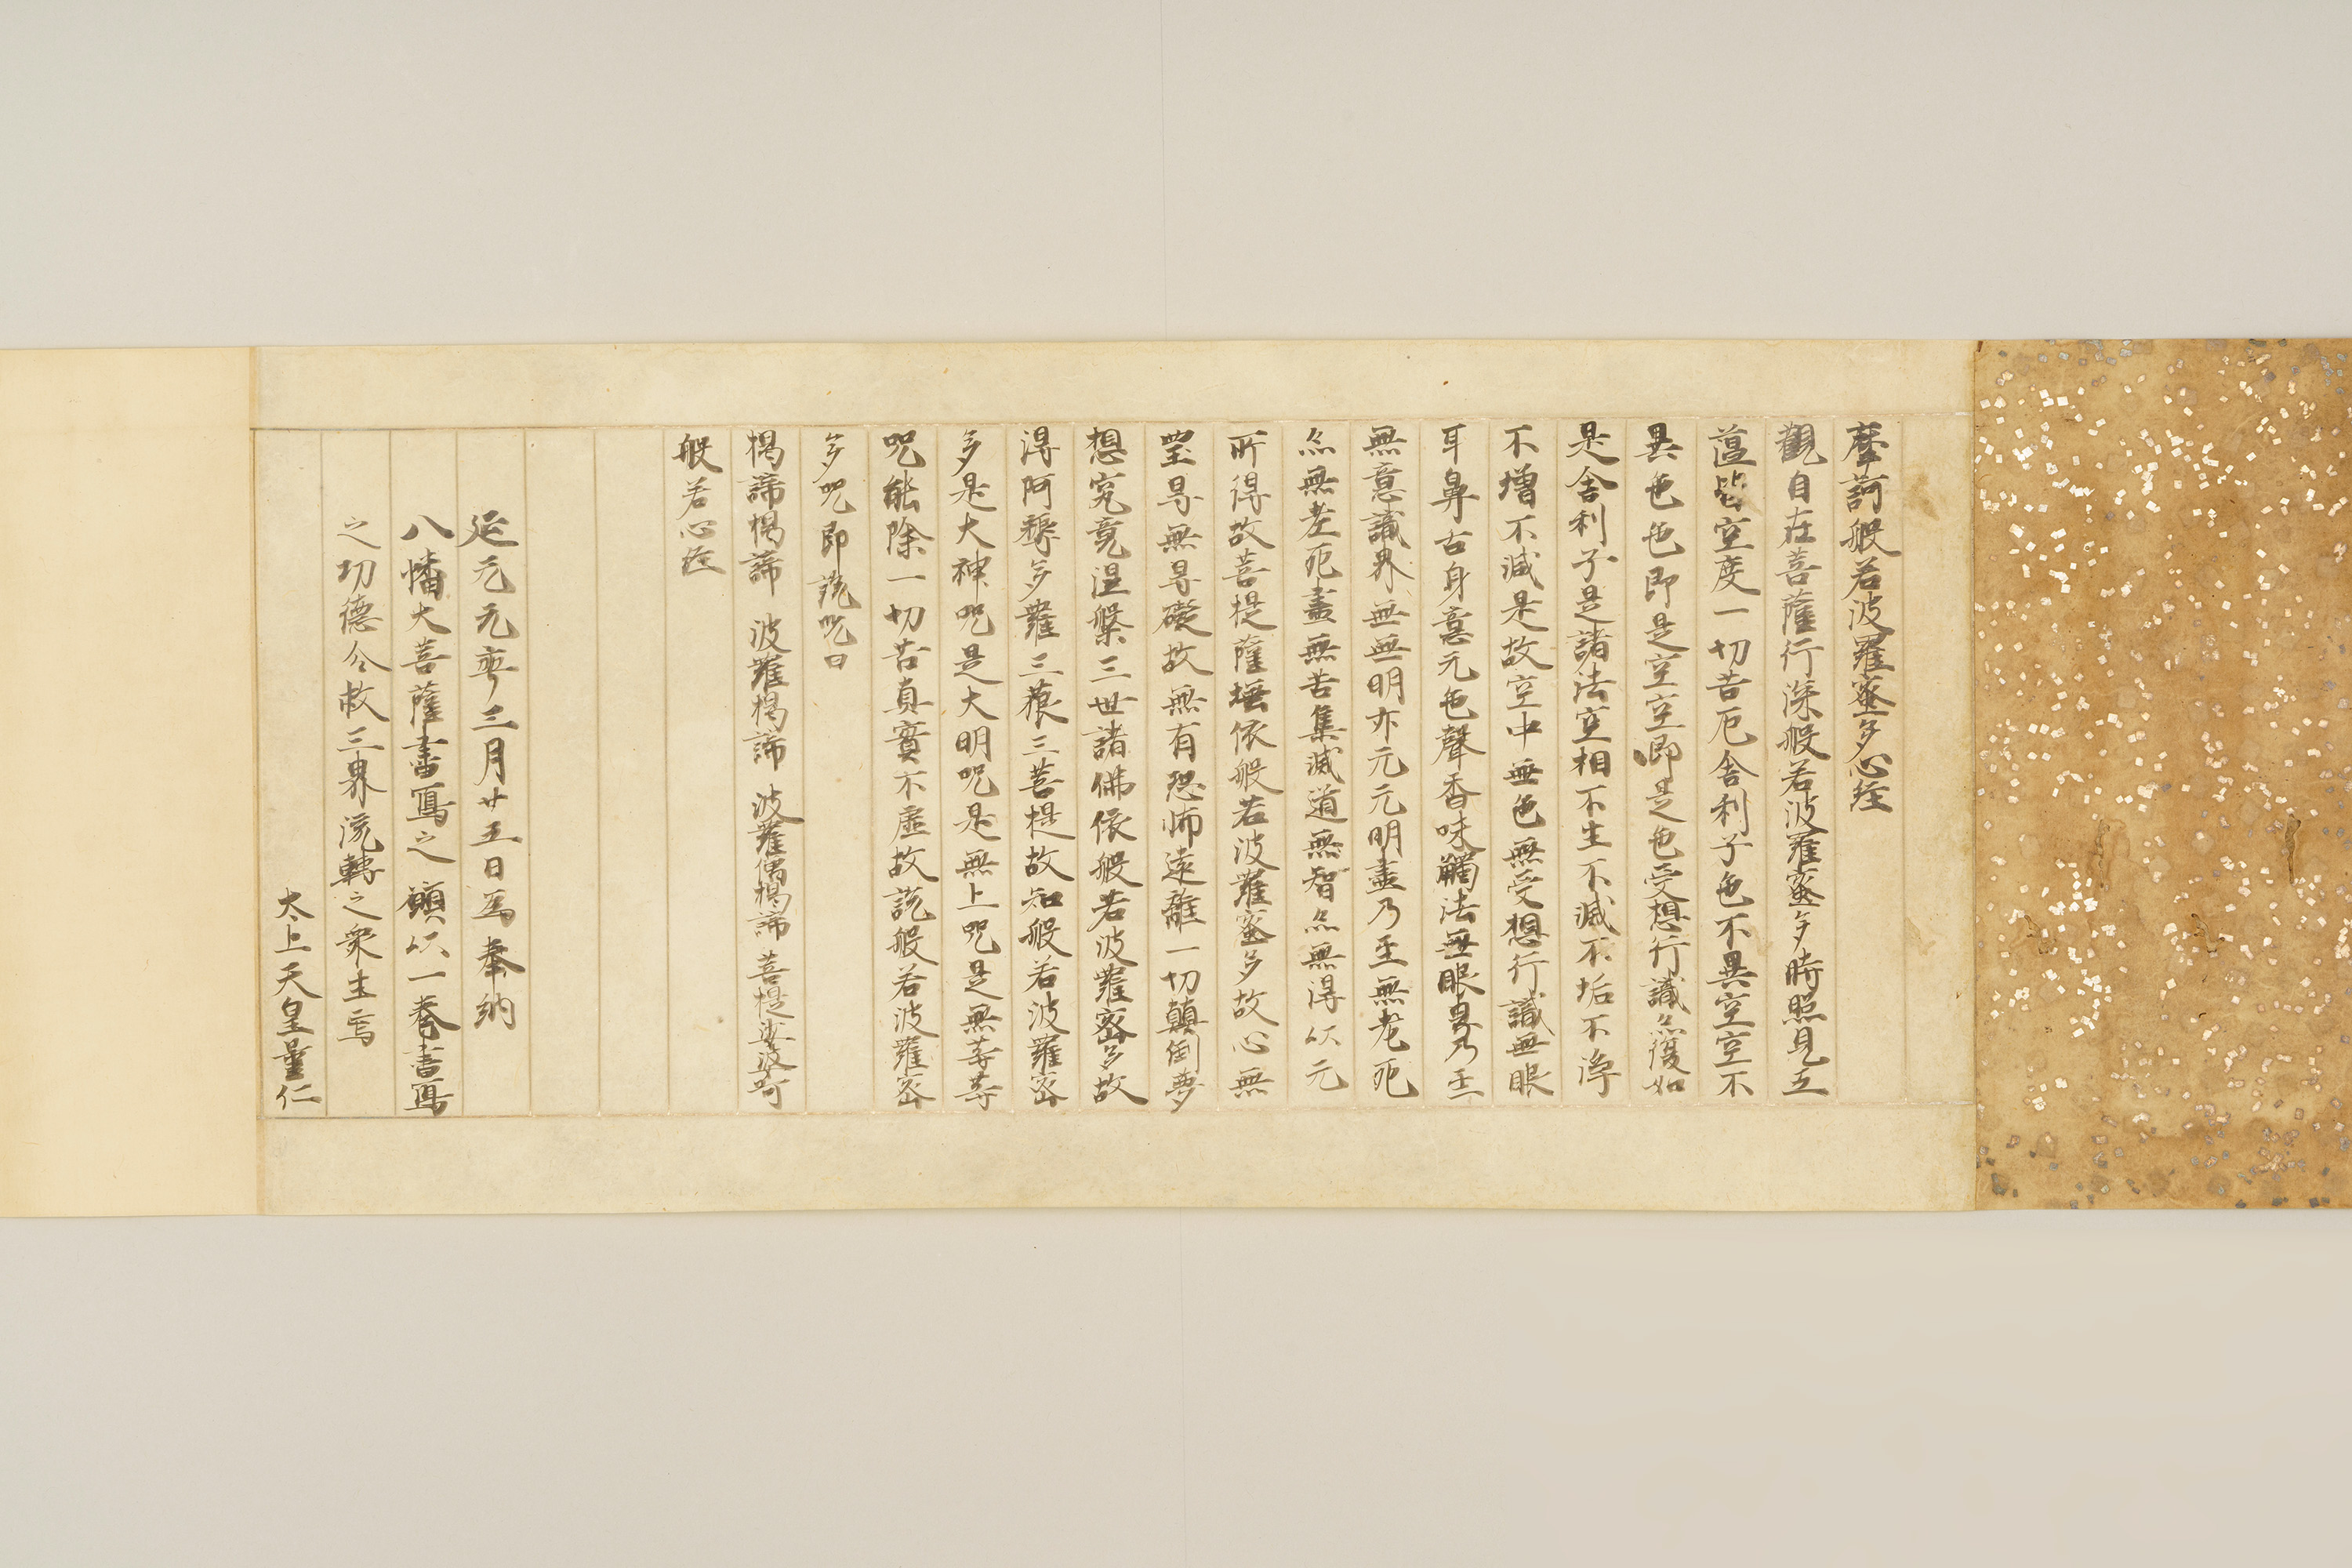 摩訶般若波羅蜜多心経
觀自在菩薩行深般若波羅蜜多時照見五
薀皆空度一切苦厄舎利子色不異空空不
異色色即是空空即是色受想行識亦復如
是舎利子是諸法空相不生不滅不垢不淨
不増不滅是故空中無色無受想行識無眼
耳鼻舌身意元色聲香味觸法無眼界乃至
無意識界無無明亦元元明盡乃至無老死
亦無老死盡無苦集滅道無智亦無得以元
所得故菩提薩埵依般若波羅蜜多故心無
罣㝵無㝵礙故無有恐怖遠離一切顛倒夢
想究竟涅槃三世諸佛依般若波羅蜜多故
得阿耨多羅三藐三菩提故知般若波羅蜜
多是大神咒是大明咒是無上咒是無等等
咒能除一切苦真實不虚故説般若波羅蜜
多咒即説咒曰
揭諦揭諦 波羅揭諦 波羅僧揭諦 菩提娑婆訶
般若心経
延元元年三月廿五日為奉納
八幡大菩薩書寫之願以一巻書寫
之功德令救三界流轉之衆生焉
太上天皇量仁